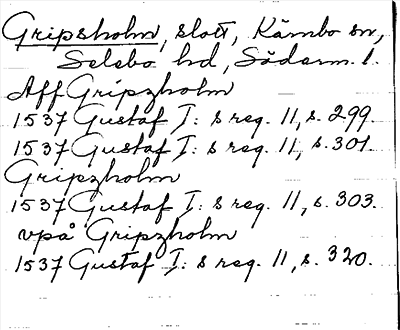 Gripsholm, slott, Kärnbo sn,
Selebo hd, Söderm. l.
Aff Gripzholm
1537 Gustaf I:s reg. 11, s. 299.
1537 Gustaf I:s reg. 11, s. 301.
Gripzholm
1537 Gustaf I:s reg. 11, s. 303.
vpå Gripzholm
1537 Gustaf I:s reg. 11, s. 320.